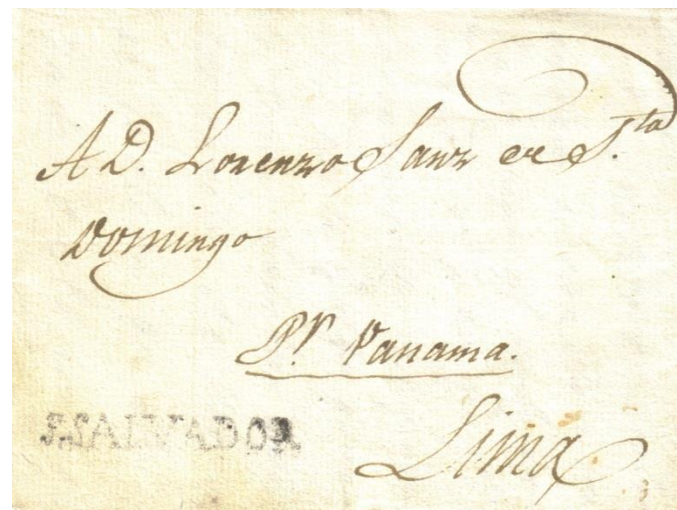 A D. Lorenzo Sanz de S.ta
Domingo
P.r Panama.
S.SALVADOR
Lima